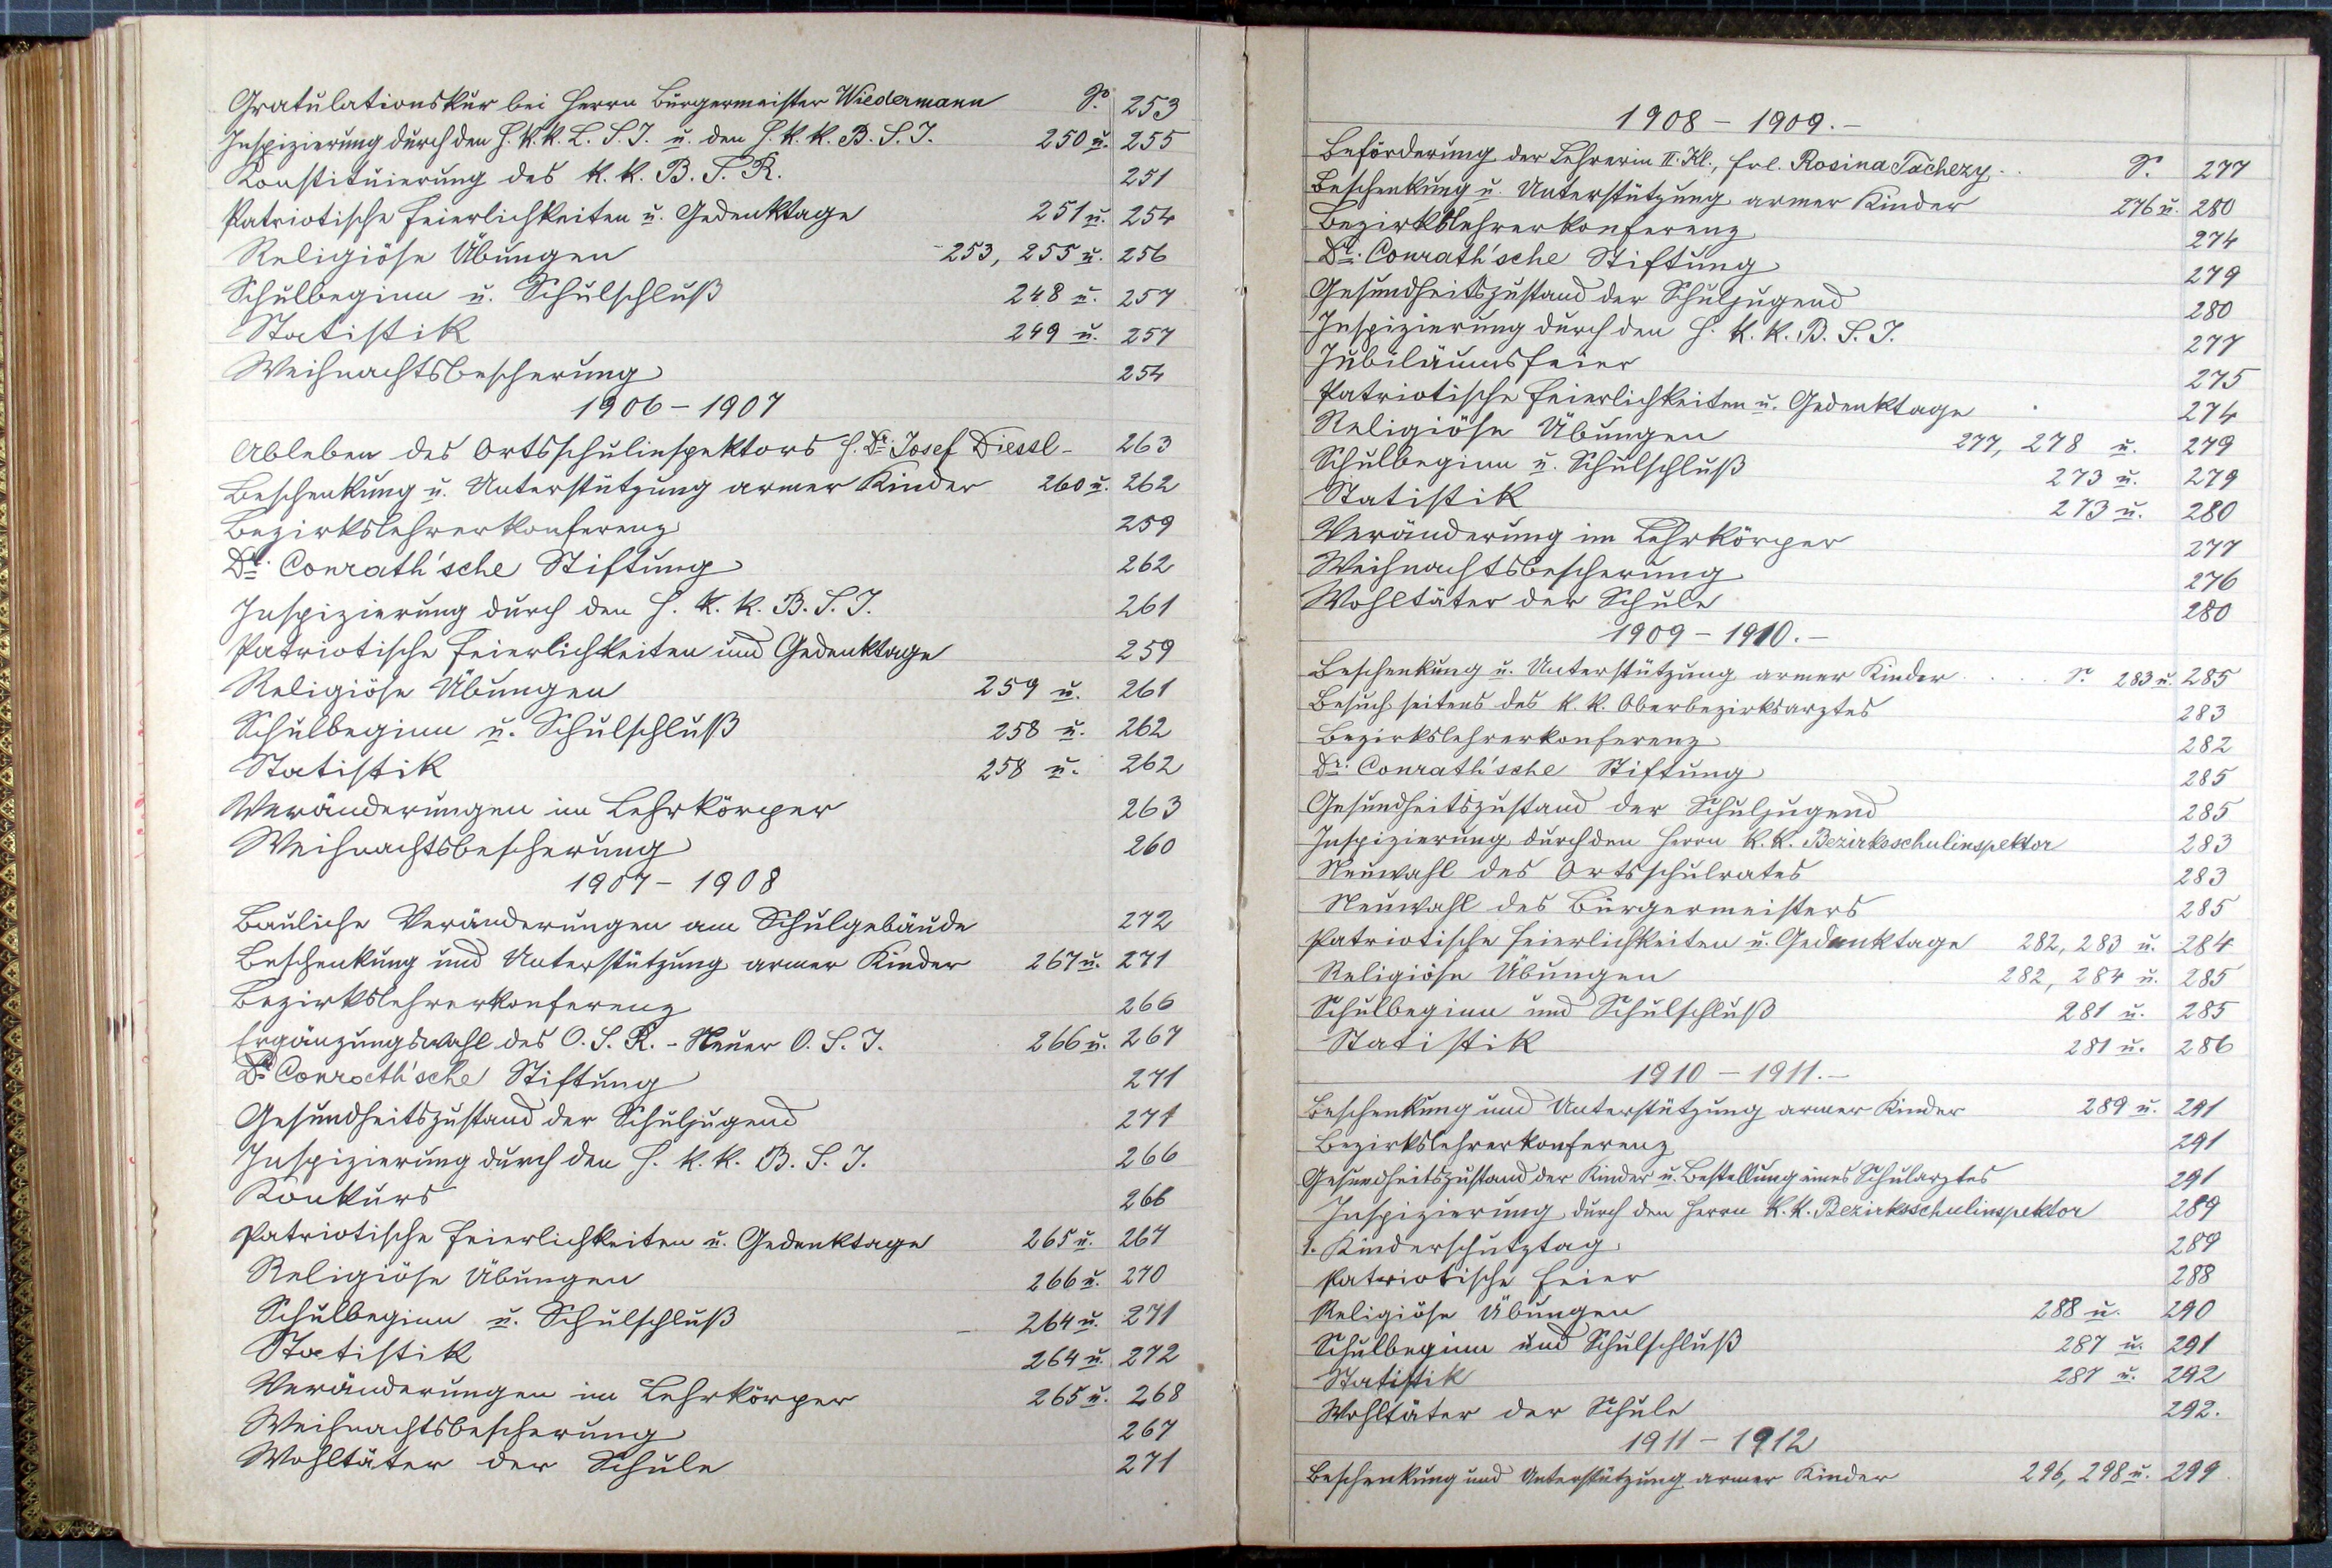 Gratulationskur bei Herrn Bürgermeister Wiedermann S. 253
Inspizierung durch den H. k. k. L. S. I. u. den H. k. k. B. S. I. 250 u. 255
Konstituierung des k. k. B. S. R. 251
Patriotische Feierlichkeiten u. Gedenktage 251 u. 254
Religiöse Übungen 253, 255 u. 256
Schulbeginn u. Schulschluß 248 u. 257
Statistik 249 u. 257
Weihnachtsbescherung 254
1906 - 1907
Ableben des Ortsschulinspektors H. Dr. Josef Diessl - 263
Beschenkung u. Unterstützung armer Kinder 260 u. 262
Bezirkslehrerkonferenz 259
Dr. Conrath'sche Stiftung 262
Inspizierung durch den H. k. k. B. S. I. 261
Patriotische Feierlichkeiten und Gedenktage 259
Religiöse Übungen 259 u. 261
Schulbeginn u. Schulschluß 258 u. 262
Statistik 258 u. 262
Veränderungen im Lehrkörper 263
Weihnachtsbescherung 260
1907 - 1908
Bauliche Veränderungen am Schulgebäude 272
Beschenkung und Unterstützung armer Kinder 267 u. 271
Bezirkslehrerkonferenz 266
Ergänzungswahl des O. S. R. - Neuer O. S. I. 266 u. 267
Dr. Conrath'sche Stiftung 271
Gesundheitszustand der Schuljugend 271
Inspizierung durch den H. k. k. B. S. I. 266
Konkurs 266
Patriotische Feierlichkeiten u. Gedenktage 265 u. 267
Religiöse Übungen 266 u. 270
Schulbeginn u. Schulschluß - 264 u. 271
Statistik 264 u. 272
Veränderungen im Lehrkörper 265 u. 268
Weihnachtsbescherung 267
Wohltäter der Schule 271
1908 - 1909. -
Beförderung der Lehrerin II. Kl., Frl. Rosina Tachezy. S. 277
Beschenkung u. Unterstützung armer Kinder 276 u. 280
Bezirkslehrerkonferenz 274
Dr. Conrath'sche Stiftung 279
Gesundheitszustand der Schuljugend 280
Inspizierung durch den H. k. k. B. S. I. 277
Jubiläumsfeier 275
Patriotische Feierlichkeiten u. Gedenktage 274
Religiöse Übungen 277, 278 u. 279
Schulbeginn u. Schulschluß 273 u. 279
Statistik 273 u. 280
Veränderung im Lehrkörper 277
Weihnachtsbescherung 276
Wohltäter der Schule 280
1909 - 1910. -
Beschenkung u. Unterstützung armer Kinder . . . . S. 283 u. 285
Besuch seitens des k. k. Oberbezirksarztes 283
Bezirkslehrerkonferenz 282
Dr. Conrath'sche Stiftung 285
Gesundheitszustand der Schuljugend 285
Inspizierung durch den Herrn k. k. Bezirksschulinspektor 283
Neuwahl des Ortsschulrates 283
Neuwahl des Bürgermeisters 285
Patriotische Feierlichkeiten u. Gedenktage 282, 283 u. 284
Religiöse Übungen 282, 284 u. 285
Schulbeginn und Schulschluß 281 u. 285
Statistik 281 u. 286
1910 - 1911. -
Beschenkung und Unterstützung armer Kinder 289 u. 291
Bezirkslehrerkonferenz 291
Gesundheitszustand der Kinder u. Bestellung eines Schularztes 291
Inspizierung durch den Herrn k. k. Bezirksschulinspektor 289
1. Kinderschutztag 289
Patriotische Feier 288
Religiöse Übungen 288 u. 290
Schulbeginn und Schulschluß 287 u. 291
Statistik 287 u. 292
Wohltäter der Schule 292.
1911 - 1912
Beschenkung und Unterstützung armer Kinder 296, 298 u. 299